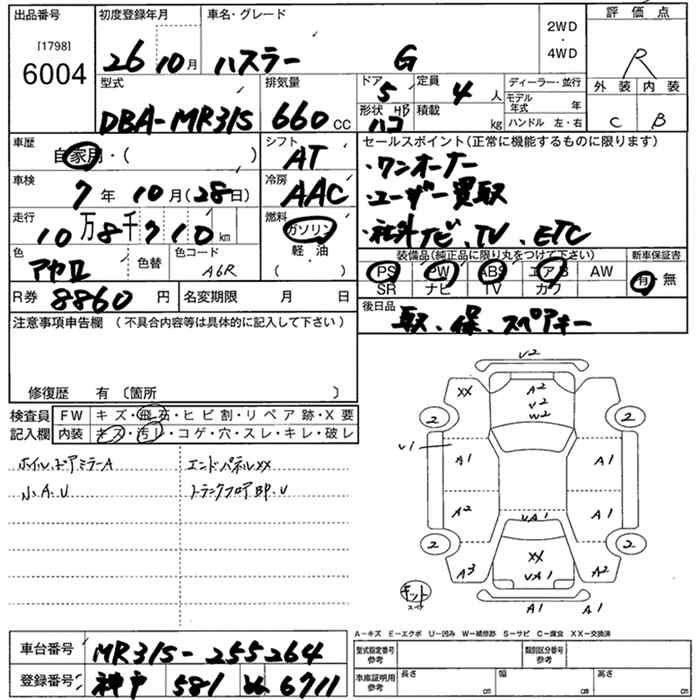 出品番号
[1798]
6004
初度登録年月
26 10月
車名・グレード
ハスラー G
2WD
・
4WD
評価点
R
外装 内装
C B
型式
DBA-MR31S
排気量
660 CC
ドア
5
形状 HB
ハコ
定員
4人
積載
kg
ディーラー・並行
モデル年式 年
ハンドル 左・右
車歴
自家用・( )
シフト
AT
車検
7年10月(28日)
冷房
AAC
走行
10万8千710km
燃料
ガソリン
軽・油
( )
色
アヤロ
色替
色コード
A6R
R券
8860円
名変期限 月 日
セールスポイント(正常に機能するものに限ります)
・ワンオーナー
・ユーザー買取
・社外ナビ、TV、ETC
装備品(純正品に限り丸をつけて下さい)
新車保証書
PS PW ABS エアB AW
SR ナビ TV カワ
有・無
後日品
取、保、スペアキー
注意事項申告欄 (不具合内容等は具体的に記入して下さい)
修復歴 有〔箇所 〕
検査員記入欄
FW キズ・飛石・ヒビ割・リペア跡・X要
内装 キズ・汚レ・コゲ・穴・スレ・キレ・破レ
ホイル、ドアミラーA
小A、U
エンドパネルXX
トランクフロアBP、U
V2
XX
A2
V2
W2
2
2
V1
A1
A1
A2
UA1
A1
2
2
XX
UA1
A3
A2
キット
スペア
A1
A1
A-キズ E-エクボ U-凹み W-補修跡 S-サビ C-腐食 XX-交換済
車台番号
MR31S-255264
登録番号
神戸 581 ぬ 6711
型式指定番号
参考
類別区分番号
車庫証明用
参考
長さ cm
幅 cm
高さ cm